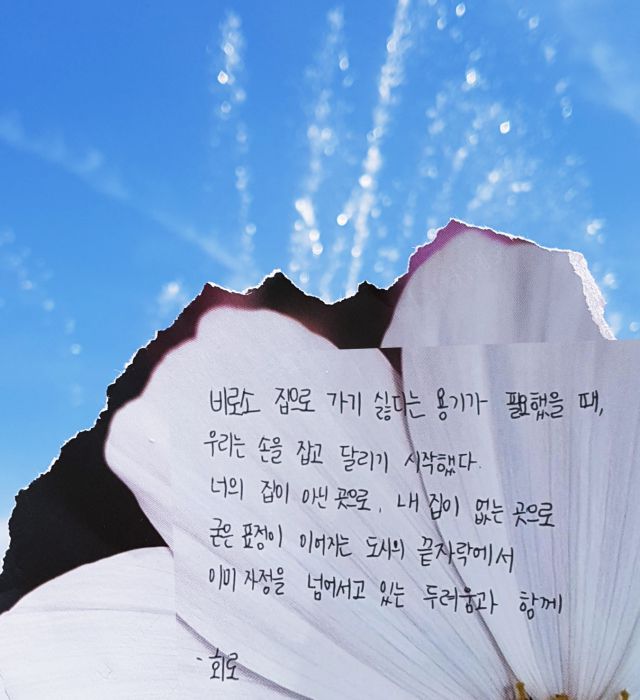 비로소 집으로 가기 싫다는 용기가 필요했을 때,
우리는 손을 잡고 달리기 시작했다.
너의 집이 아닌 곳으로, 내 집이 없는 곳으로
굳은 표정이 이어지는 도시의 끝자락에서
이미 자정을 넘어서고 있는 두려움과 함께
- 회로